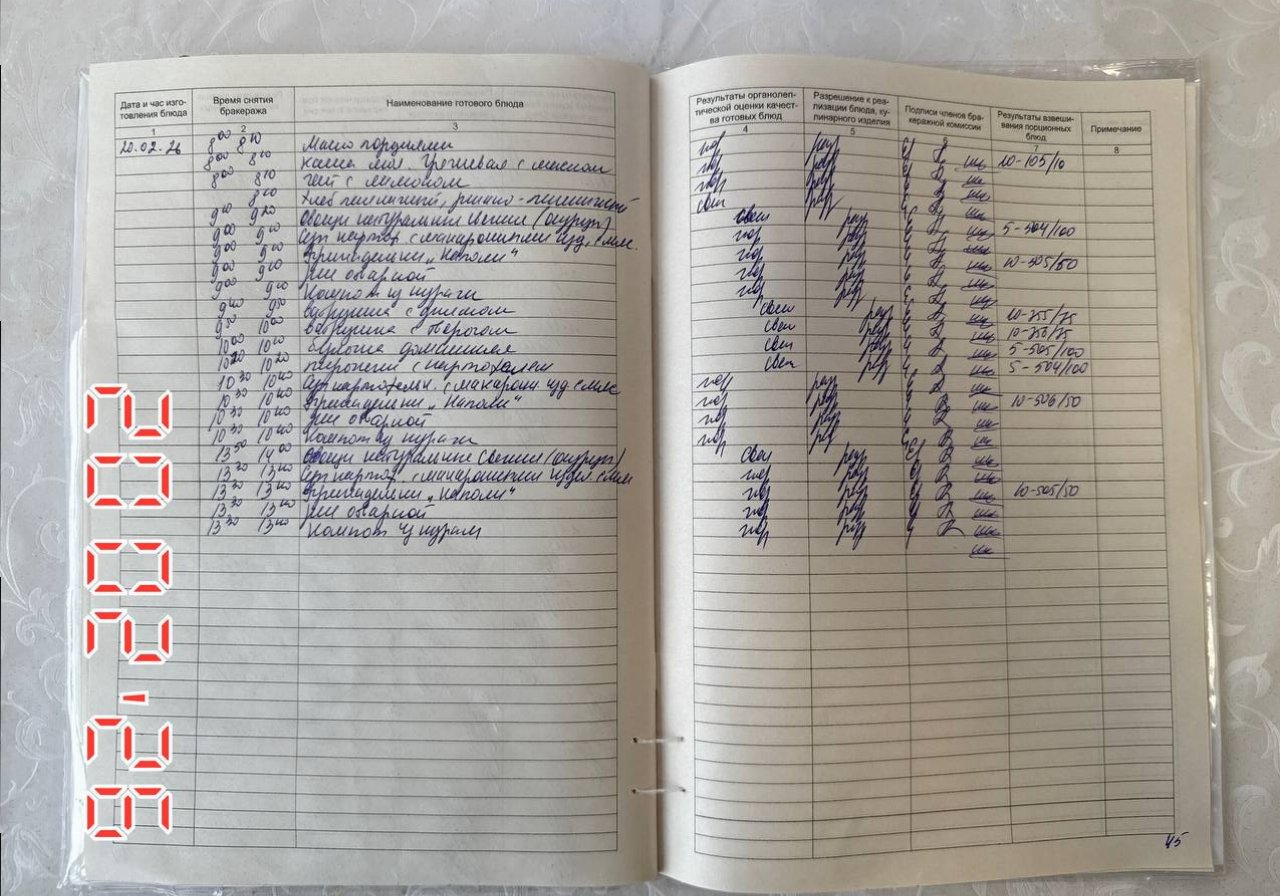 Дата и час изго-
товления блюда
Время снятия
бракеража
Наименование готового блюда
1 2 3
20.02.26 8 00 8 10 Масло порциями
8 00 8 10 Каша гречневая с маслом
8 00 8 10 чай с лимоном
8 10 Хлеб пшеничный, ржано-пшеничный
9 10 9 20 Овощи натуральные свежие (огурцы)
9 00 9 10 Суп картоф. с макаронными изд. с мяс.
9 00 9 10 Фрикадельки „Наполи"
9 00 9 10 Рис отварной
9 00 9 10 Компот из кураги
9 40 9 50
9 50 10 00 Ватрушка с творогом
10 00 10 10 Булочка домашняя
10 20 пирожки с картофелем
10 30 10 40 Суп картофельн. с макарон изд с мяс
10 30 10 40 Фрикадельки „Наполи"
10 30 10 40 Рис отварной
10 30 10 40 Компот из кураги
13 50 14 00 Овощи натуральные свежие (огурцы)
13 30 13 40 Суп картоф. с макаронными издел с мяс
13 30 13 40 Фрикадельки „Наполи"
13 30 13 40 Рис отварной
13 30 13 40 Компот из кураги
Результаты органолеп-
тической оценки качест-
ва готовых блюд
Разрешение к реа-
лизации блюда, ку-
линарного изделия
Подписи членов бра-
керажной комиссии
Результаты взвеши-
вания порционных
блюд
Примечание
4 5 7 8
разр 10-105/10
разр
разр
свеж разр
свеж разр 5-504/100
разр
разр 10-505/50
разр
разр
свеж разр 10-755/75
свеж разр 10-756/75
свеж разр 5-505/100
свеж разр 5-504/100
разр
разр 10-506/50
разр
разр
свеж разр
разр
разр 10-505/50
разр
разр
45
20.02-26